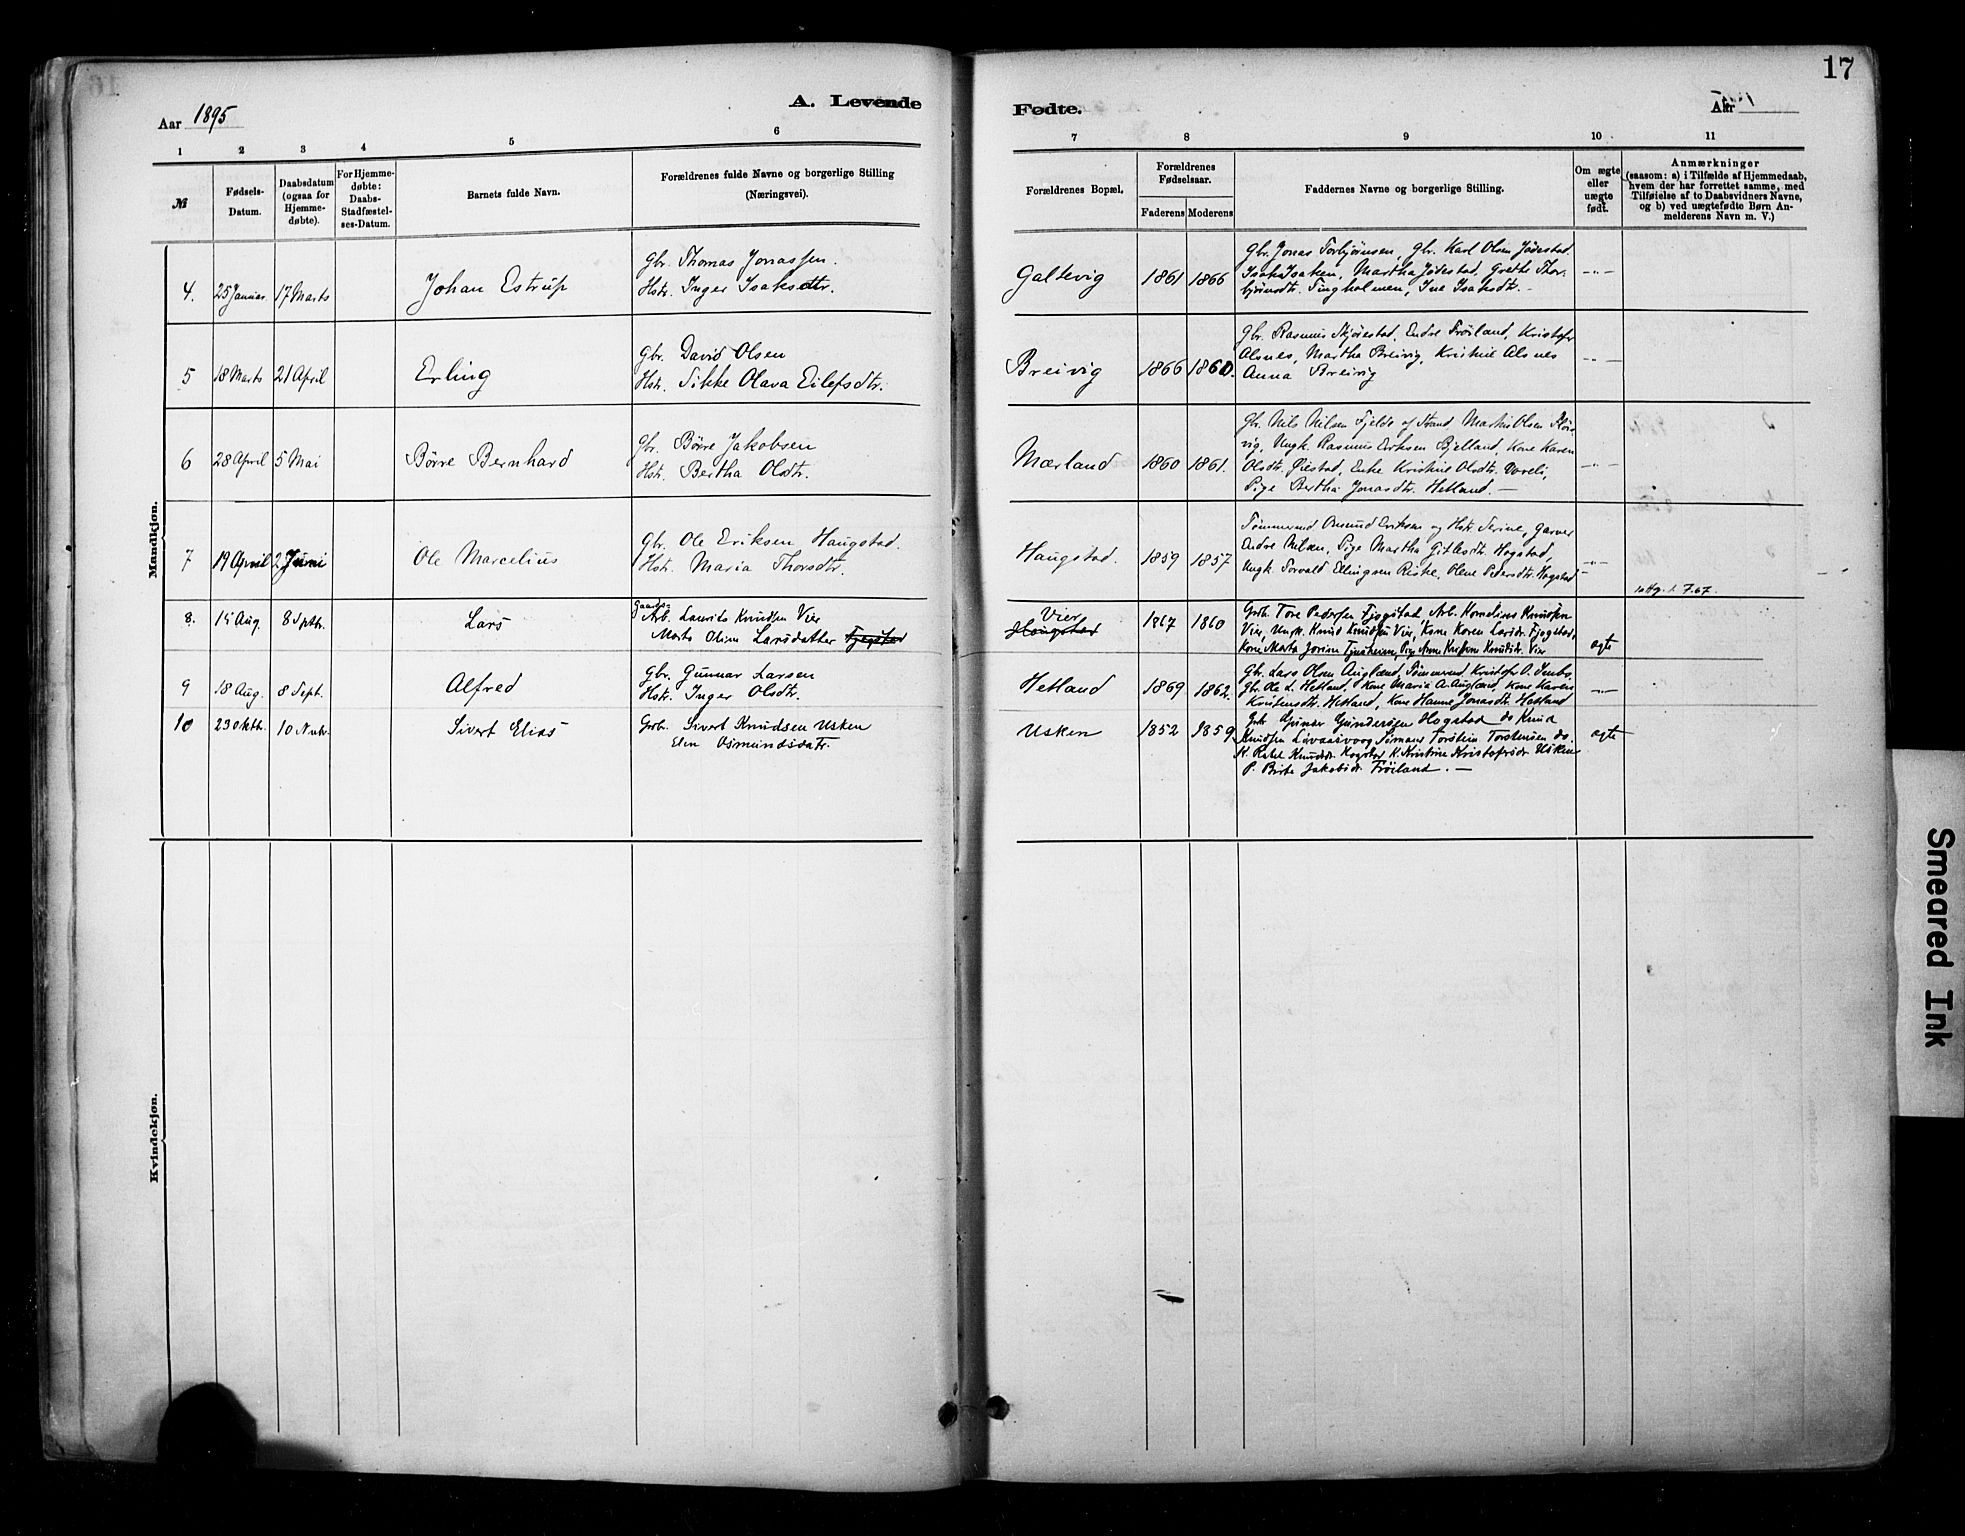 17
Aar 1895
A. Levende
Fødte.
Aar
1 2 3 4 5 6
7 8 9 10 11
№
Fødsels-
Datum.
Daabsdatum
(ogsaa for
Hjemme-
døbte).
For Hjemme-
døbte:
Daabs-
Stadfæstel-
ses-Datum.
Barnets fulde Navn.
Forældrenes fulde Navne og borgerlige Stilling
(Næringsvei).
Forældrenes Bopæl.
Forældrenes
Fødselsaar.
Faderens Moderens
Faddernes Navne og borgerlige Stilling.
Om ægte
eller
uægte
født.
Anmærkninger
(saasom: a) i Tilfælde af Hjemmedaab,
hvem der har forrettet samme, med
Tilføielse af to Daabsvidners Navne,
og b) ved uægtefødte Børn An-
melderens Navn m. V.)
Mandkjøn.
4. 25 Januar 17 Marts Johan Estrup
Gbr. Thomas Jonassen.
Hstr. Inger Isaksdtr.
Galtevig 1861 1866
Gbr. Jonas Torbjørnsen, Gbr. Karl Olsen Jødestad
Isak Isaksen, Martha Jødestad, Grethe Thor-
bjørnsdtr. Tingholmen, Ine Isaksdtr. -
-"-
5 18 Marts 21 April Erling
Gbr. David Olsen
Hstr. Sikke Olava Eilefsdtr.
Breivig 1866 1860.
Gbr. Rasmus Skjørestad, Endre Frøiland, Kristofer
Alsnes, Martha Breivig, Kristine Alsnes
Anna Breivig
-"-
6 28 April 5 Mai Børre Bernhard
Gbr. Børre Jakobsen
Hstr. Bertha Olsdtr.
Mærland 1860 1861.
Gbr. Nils Nilsen Fjelde af Strand Martin Olsen
vig, Ungk. Rasmus Eriksen Bjelland, Kone Karen
Olsdtr. Øiestad, Enke Kristine Olsdtr.
Pige Bertha Jonasdtr. Hetland. -
-"-
7 19 April 2 Juni Ole Marcelius
Gbr. Ole Eriksen Haugstad.
Hstr. Maria Thorsdtr.
Haugstad. 1859 1857
Tømmermd Osmund Eriksen og Hstr. Serine, Garver
Endre Nilsen, Pige Martha Gitlesdtr. Hogstad,
Ungk. Torvald Ellingsen Riske, Olene Pedersdtr. Hogstad -
-"-
8. 15 Aug. 8 Septbr. Lars
Gaardbr.
Arb. Laurits Knudsen Vier
Marta Oline Larsdatter Fjogstad
Vier
Haugstad 1867 1860
Grb. Tore Pedersen Fjogstad, Arb. Kornelius Knudsen
Vier, Ungk. Knud Knudsen Vier, Kone Karen Larsdr. Fjogstad,
Kone Marta Jorine Tjensheim, Pige Anne Kristine Knudsdtr. Vier
ægte
9 18 Aug. 8 Sept. Alfred
Gbr. Gunnar Larsen
Hstr. Inger Olsdtr.
Hetland 1869 1862.
Gbr. Lars Olsen Augland, Tømmermd. Kristofer O.
Gbr. Ola L. Hetland, Kone Maria A. Augland, Kone Karen
Knutsensdtr. Hetland, Kone Hanne Jonasdtr. Hetland
-"-
10 23 Oktb. 10 Novbr. Sivert Elias
Grb. Sivert Knudsen Usken
Elen Osmundsdatr.
Usken 1852 1859
Grb Gunar Gundersen Hogstad do Knud
Knudsen Livaasvoog Sømand Torstein Torstensen do.
K. Rakel Knudsdr. Hogstad K. Kristine Kristofersdr. Usken
P. Birte Jakobsdr. Frøiland. -
ægte
Kvindekjøn.
Smeared Ink